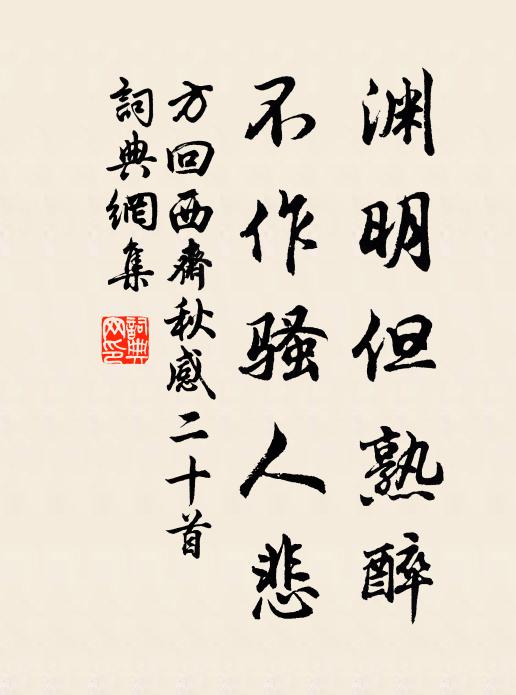 渊明但熟醉
不作骚人悲
方回西齋秋感二十首
詞典網集
詞典网印